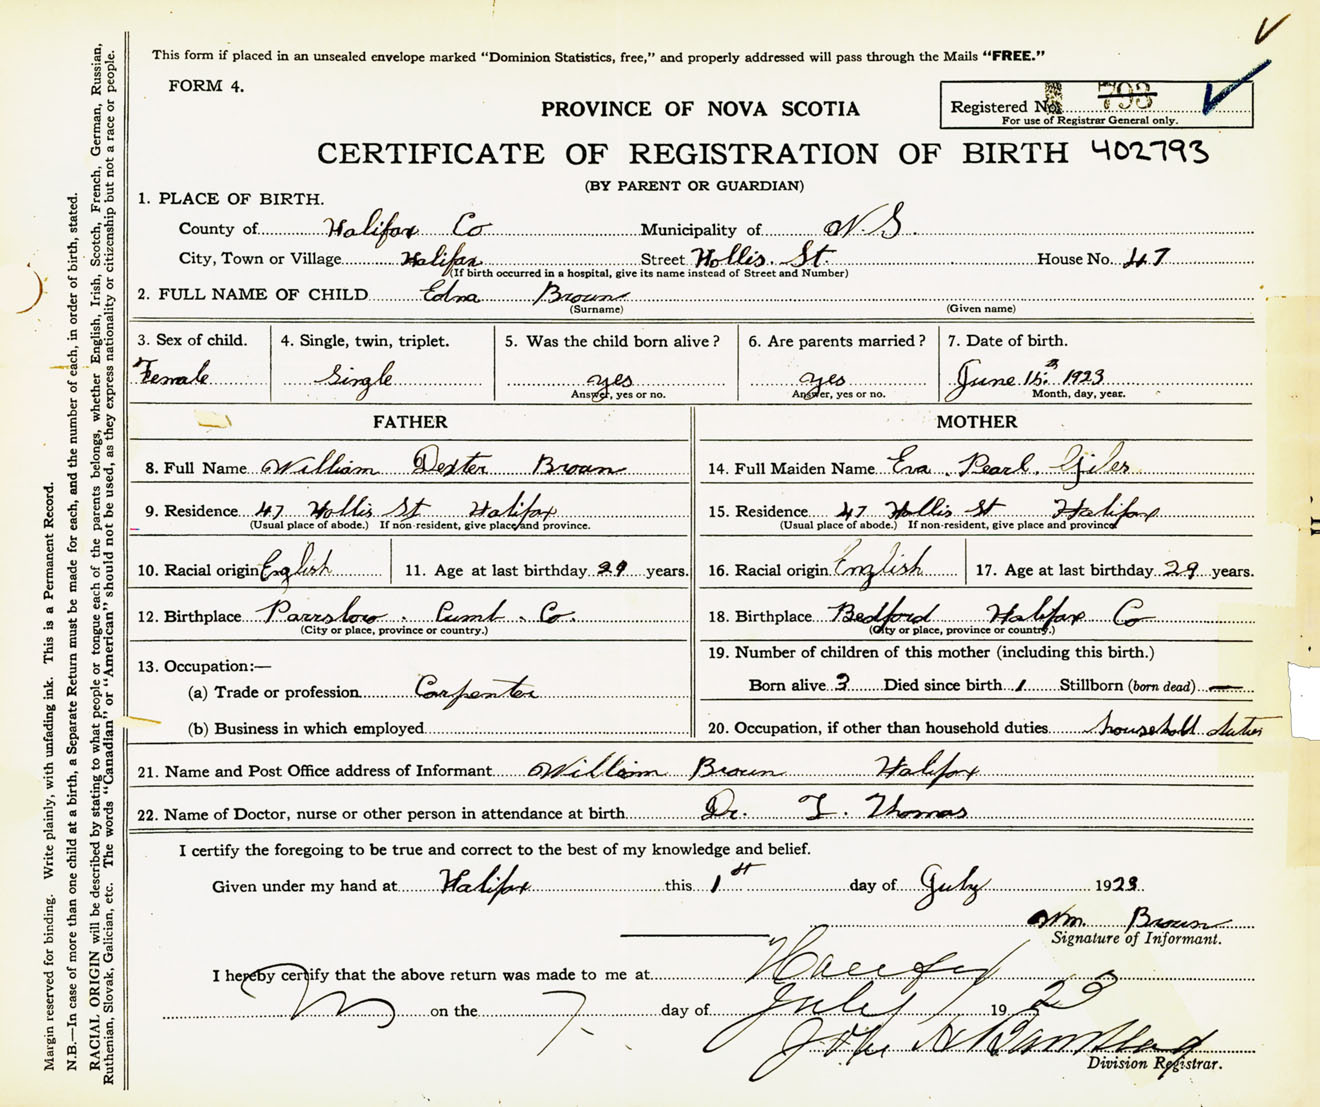 This form if placed in an unsealed envelope marked "Dominion Statistics, free," and properly addressed will pass through the Mails "FREE."
FORM 4.
Registered No. 793
For use of Registrar General only.
PROVINCE OF NOVA SCOTIA
CERTIFICATE OF REGISTRATION OF BIRTH 402793
(BY PARENT OR GUARDIAN)
1. PLACE OF BIRTH.
County of Halifax Co Municipality of N.S.
City, Town or Village Halifax Street Hollis St. House No. 47
(If birth occurred in a hospital, give its name instead of Street and Number)
2. FULL NAME OF CHILD Edna Brown
(Surname) (Given name)
3. Sex of child. 4. Single, twin, triplet. 5. Was the child born alive? 6. Are parents married? 7. Date of birth.
Female Single yes yes June 1923
Answer, yes or no. Answer, yes or no. Month, day, year.
FATHER MOTHER
8. Full Name William Dexter Brown 14. Full Maiden Name Eva Pearl Giles
9. Residence 47 Hollis St Halifax 15. Residence 47 Hollis St Halifax
(Usual place of abode.) If non-resident, give place and province. (Usual place of abode.) If non-resident, give place and province
10. Racial origin English 11. Age at last birthday 29 years. 16. Racial origin English 17. Age at last birthday 29 years.
12. Birthplace Parrsboro. Cumb. Co. 18. Birthplace Bedford Halifax Co
(City or place, province or country.) (City or place, province or country.)
13. Occupation:— 19. Number of children of this mother (including this birth.)
(a) Trade or profession Carpenter Born alive 3 Died since birth 1 Stillborn (born dead) —
(b) Business in which employed 20. Occupation, if other than household duties household duties
21. Name and Post Office address of Informant William Brown Halifax
22. Name of Doctor, nurse or other person in attendance at birth Dr. I. Thomas
I certify the foregoing to be true and correct to the best of my knowledge and belief.
Given under my hand at Halifax this 1st day of July 1923
Wm. Brown
Signature of Informant.
I hereby certify that the above return was made to me at Halifax
on the 7 day of July 1923
Division Registrar.
Margin reserved for binding. Write plainly, with unfading ink. This is a Permanent Record.
N.B.—In case of more than one child at a birth, a Separate Return must be made for each, and the number of each, in order of birth, stated.
RACIAL ORIGIN will be described by stating to what people or tongue each of the parents belongs, whether English, Irish, Scotch, French, German, Russian,
Ruthenian, Slovak, Galician, etc. The words "Canadian" or "American" should not be used, as they express nationality or citizenship but not a race or people.